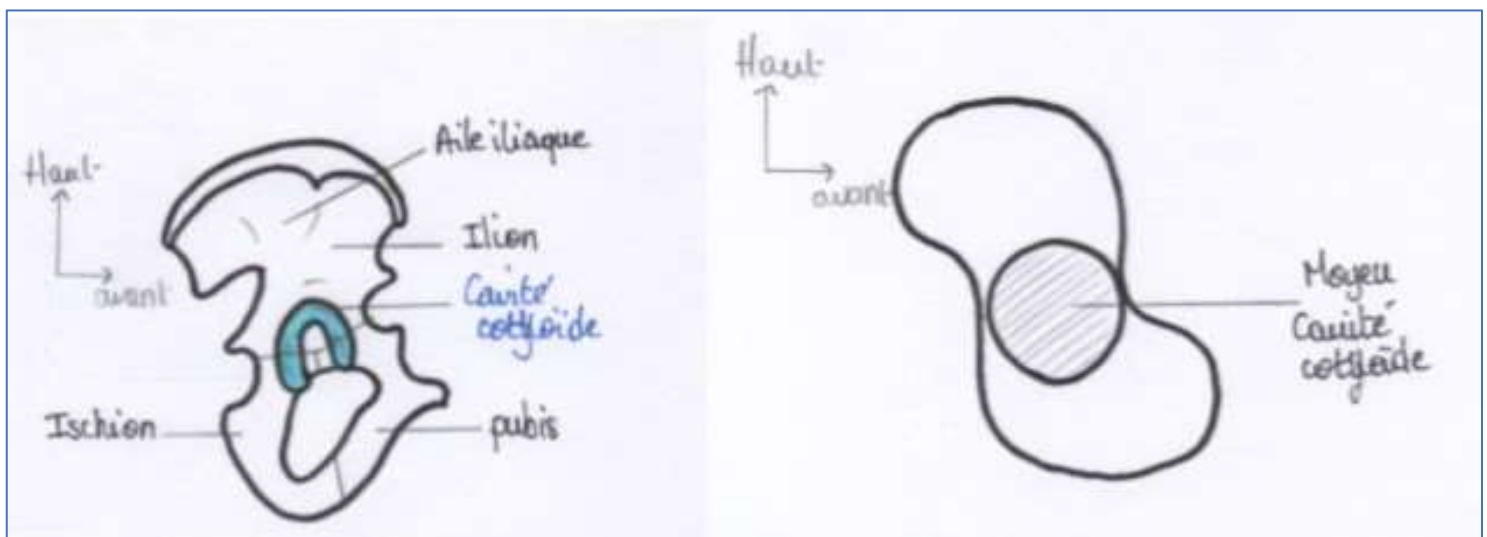 Haut
avant
Aile iliaque
Ilion
Cavité
cotyloïde
Ischion
pubis
Haut
avant
Moyeu
Cavité
cotyloïde